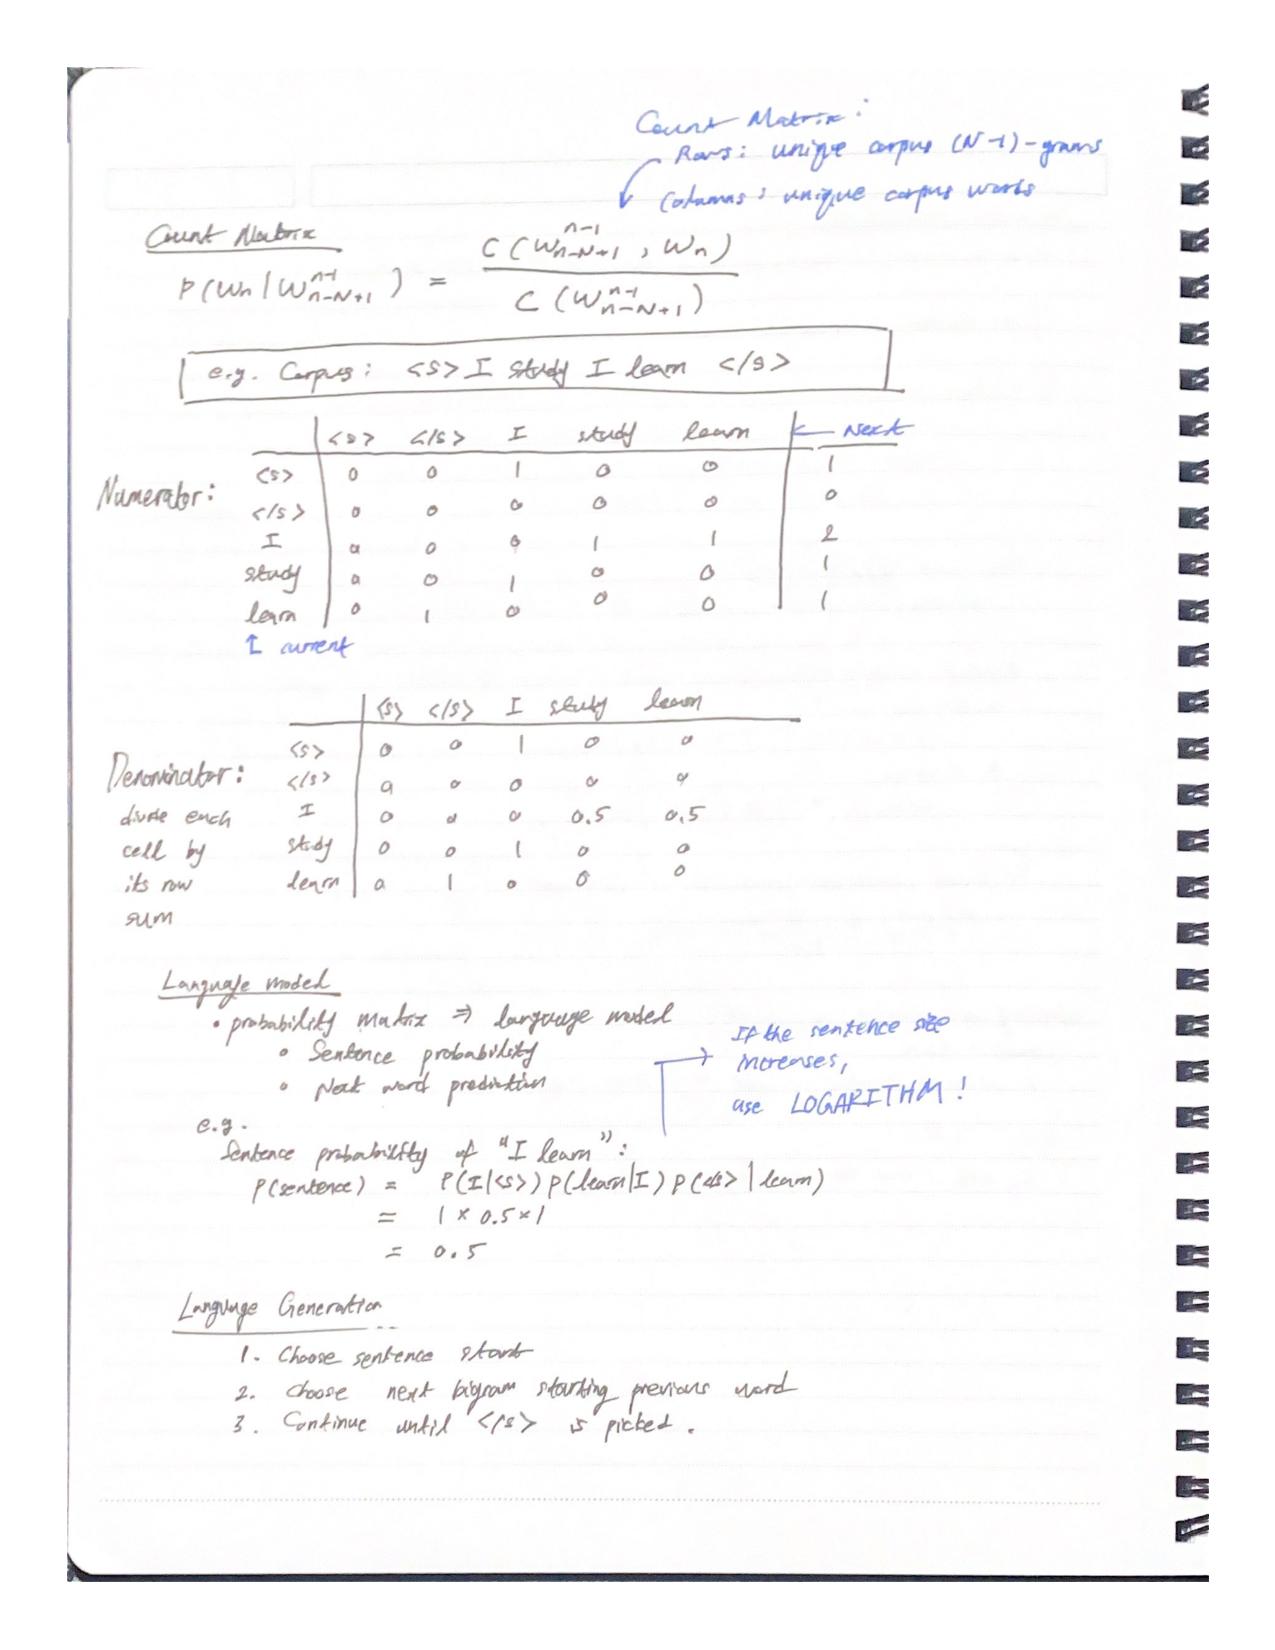 Count Matrix:
Rows: unique corpus (N-1)-grams
Columns: unique corpus words
Count Matrix
P(Wn | W n-1 n-N+1) = C(W n-1 n-N+1, Wn) / C(W n-1 n-N+1)
e.g. Corpus: <s> I study I learn </s>
<s> </s> I study learn ← Next
Numerator:
<s> 0 0 1 0 0 1
</s> 0 0 0 0 0 0
I 0 0 0 1 1 2
study 0 0 1 0 0 1
learn 0 1 0 0 0 1
↑ current
<s> </s> I study learn
Denominator:
divide each
cell by
its row
sum
<s> 0 0 1 0 0
</s> 0 0 0 0 0
I 0 0 0 0.5 0.5
study 0 0 1 0 0
learn 0 1 0 0 0
Language model
• probability matrix ⇒ language model
• Sentence probability
• Next word prediction
If the sentence size
increases,
use LOGARITHM!
e.g.
Sentence probability of "I learn":
P(sentence) = P(I|<s>) P(learn|I) P(</s>|learn)
= 1 × 0.5 × 1
= 0.5
Language Generation
1. Choose sentence start
2. Choose next bigram starting previous word
3. Continue until </s> is picked.